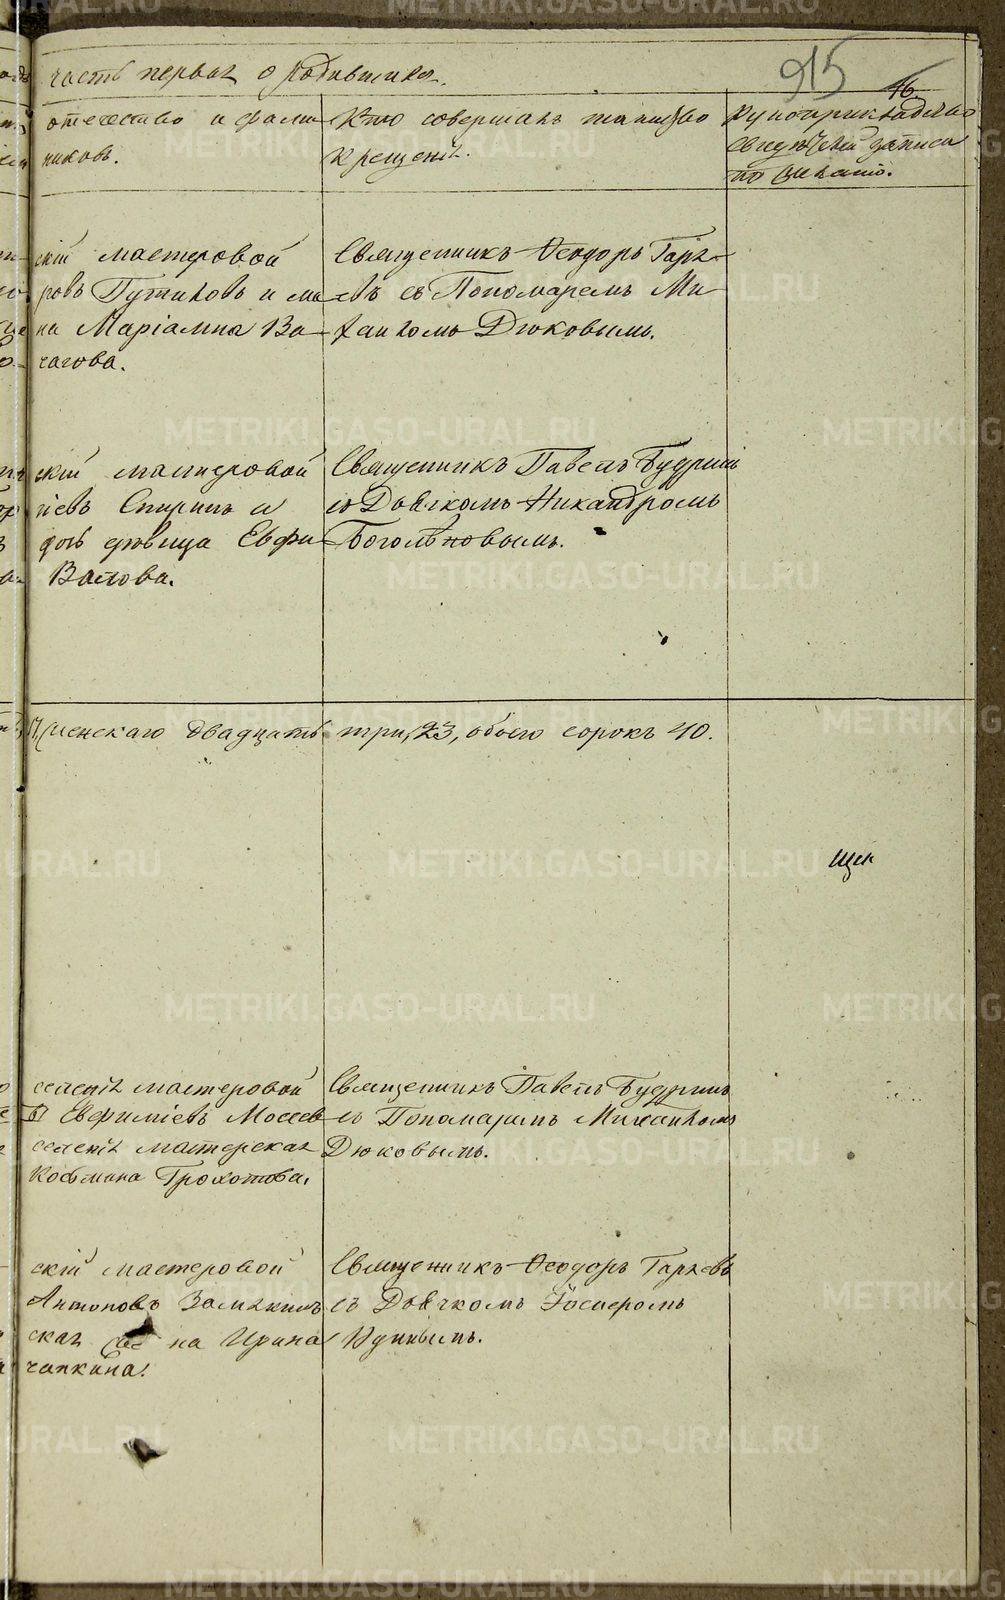 часть первая о родившихся.
915
16.
отечество и фами
ников.
Кто совершалъ таинство
крещенія.
Рукоприкладство
свидѣтелей записи
по желанію.
скій мастеровой
ровъ Путиловъ и
на Маріамна Ва
чагова.
Священникъ Ѳеодоръ Гаря
евъ съ Пономаремъ Ми
хаиломъ Дюковымъ.
скій мастеровой
Спиринъ и
дочь дѣвица Евфи
Валова.
Священникъ Павелъ Будринъ
съ Дьячкомъ Никандромъ
Боголѣповымъ.
женскаго двадцать три, 23, обоего сорокъ 40.
селенія мастеровой
Евфиміевъ Мосеев
селенія мастерская
Косьмина Грохотова.
Священникъ Павелъ Будринъ
съ Пономаремъ Михаиломъ
Дюковымъ.
скій мастеровой
Антоновъ
ская на Ирина
чапкина.
Священникъ Ѳеодоръ Гаряевъ
съ Дьячкомъ
METRIKI.GASO-URAL.RU